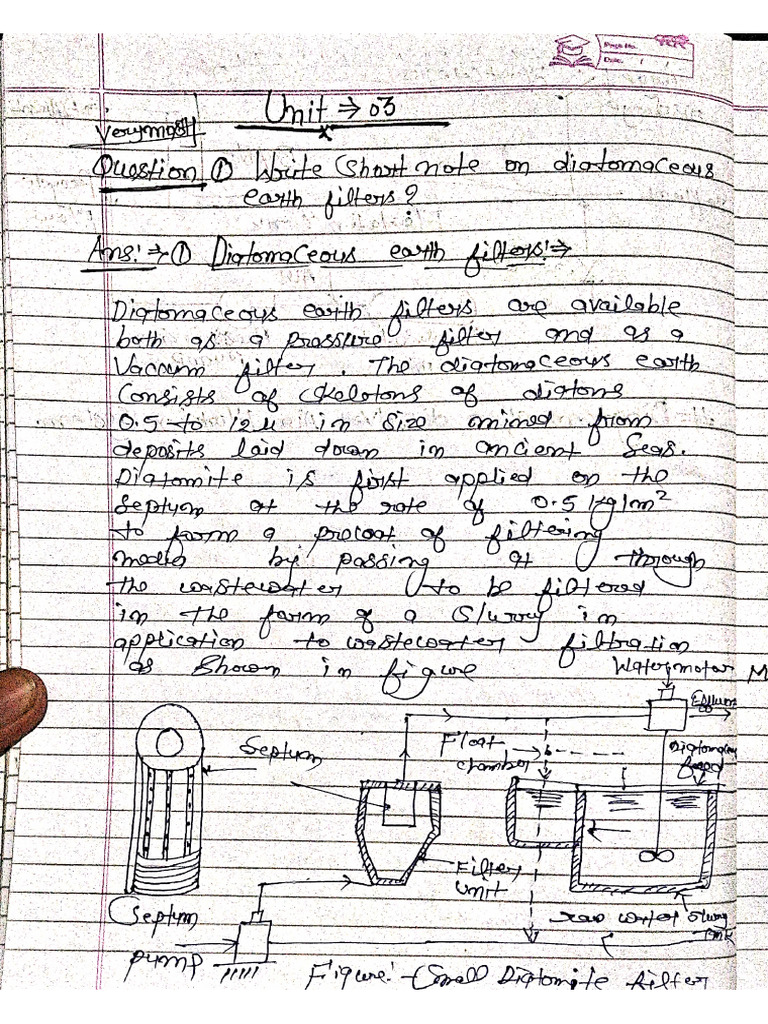 Page No.
Date: / /
Unit ⇒ 03
Verymost
Question ① Write Short note on diatomaceous
earth filters?
Ans:⇒ ① Diatomaceous earth filters:⇒
Diatomaceous earth filters are available
both as a pressure filter and as a
Vaccum filter. The diatomaceous earth
Consists of Skelotons of diatoms
0.5 to 12 μ in Size mined from
deposits laid down in ancient Seas.
Diatomite is first applied on the
Septum at the rate of 0.5 kg/m²
to form a precoat of filtering
media by passing at through
the wastewater to be filtered
in the form of a Slurry in
application to wastewater filtration
as Shown in figure
Water motor M
Effluent
Septum
Float
chamber
Diatomaceous
feed
Filter
Unit
Septum
raw water Slurry
tank
pump
Figure:- Small Diatomite filter